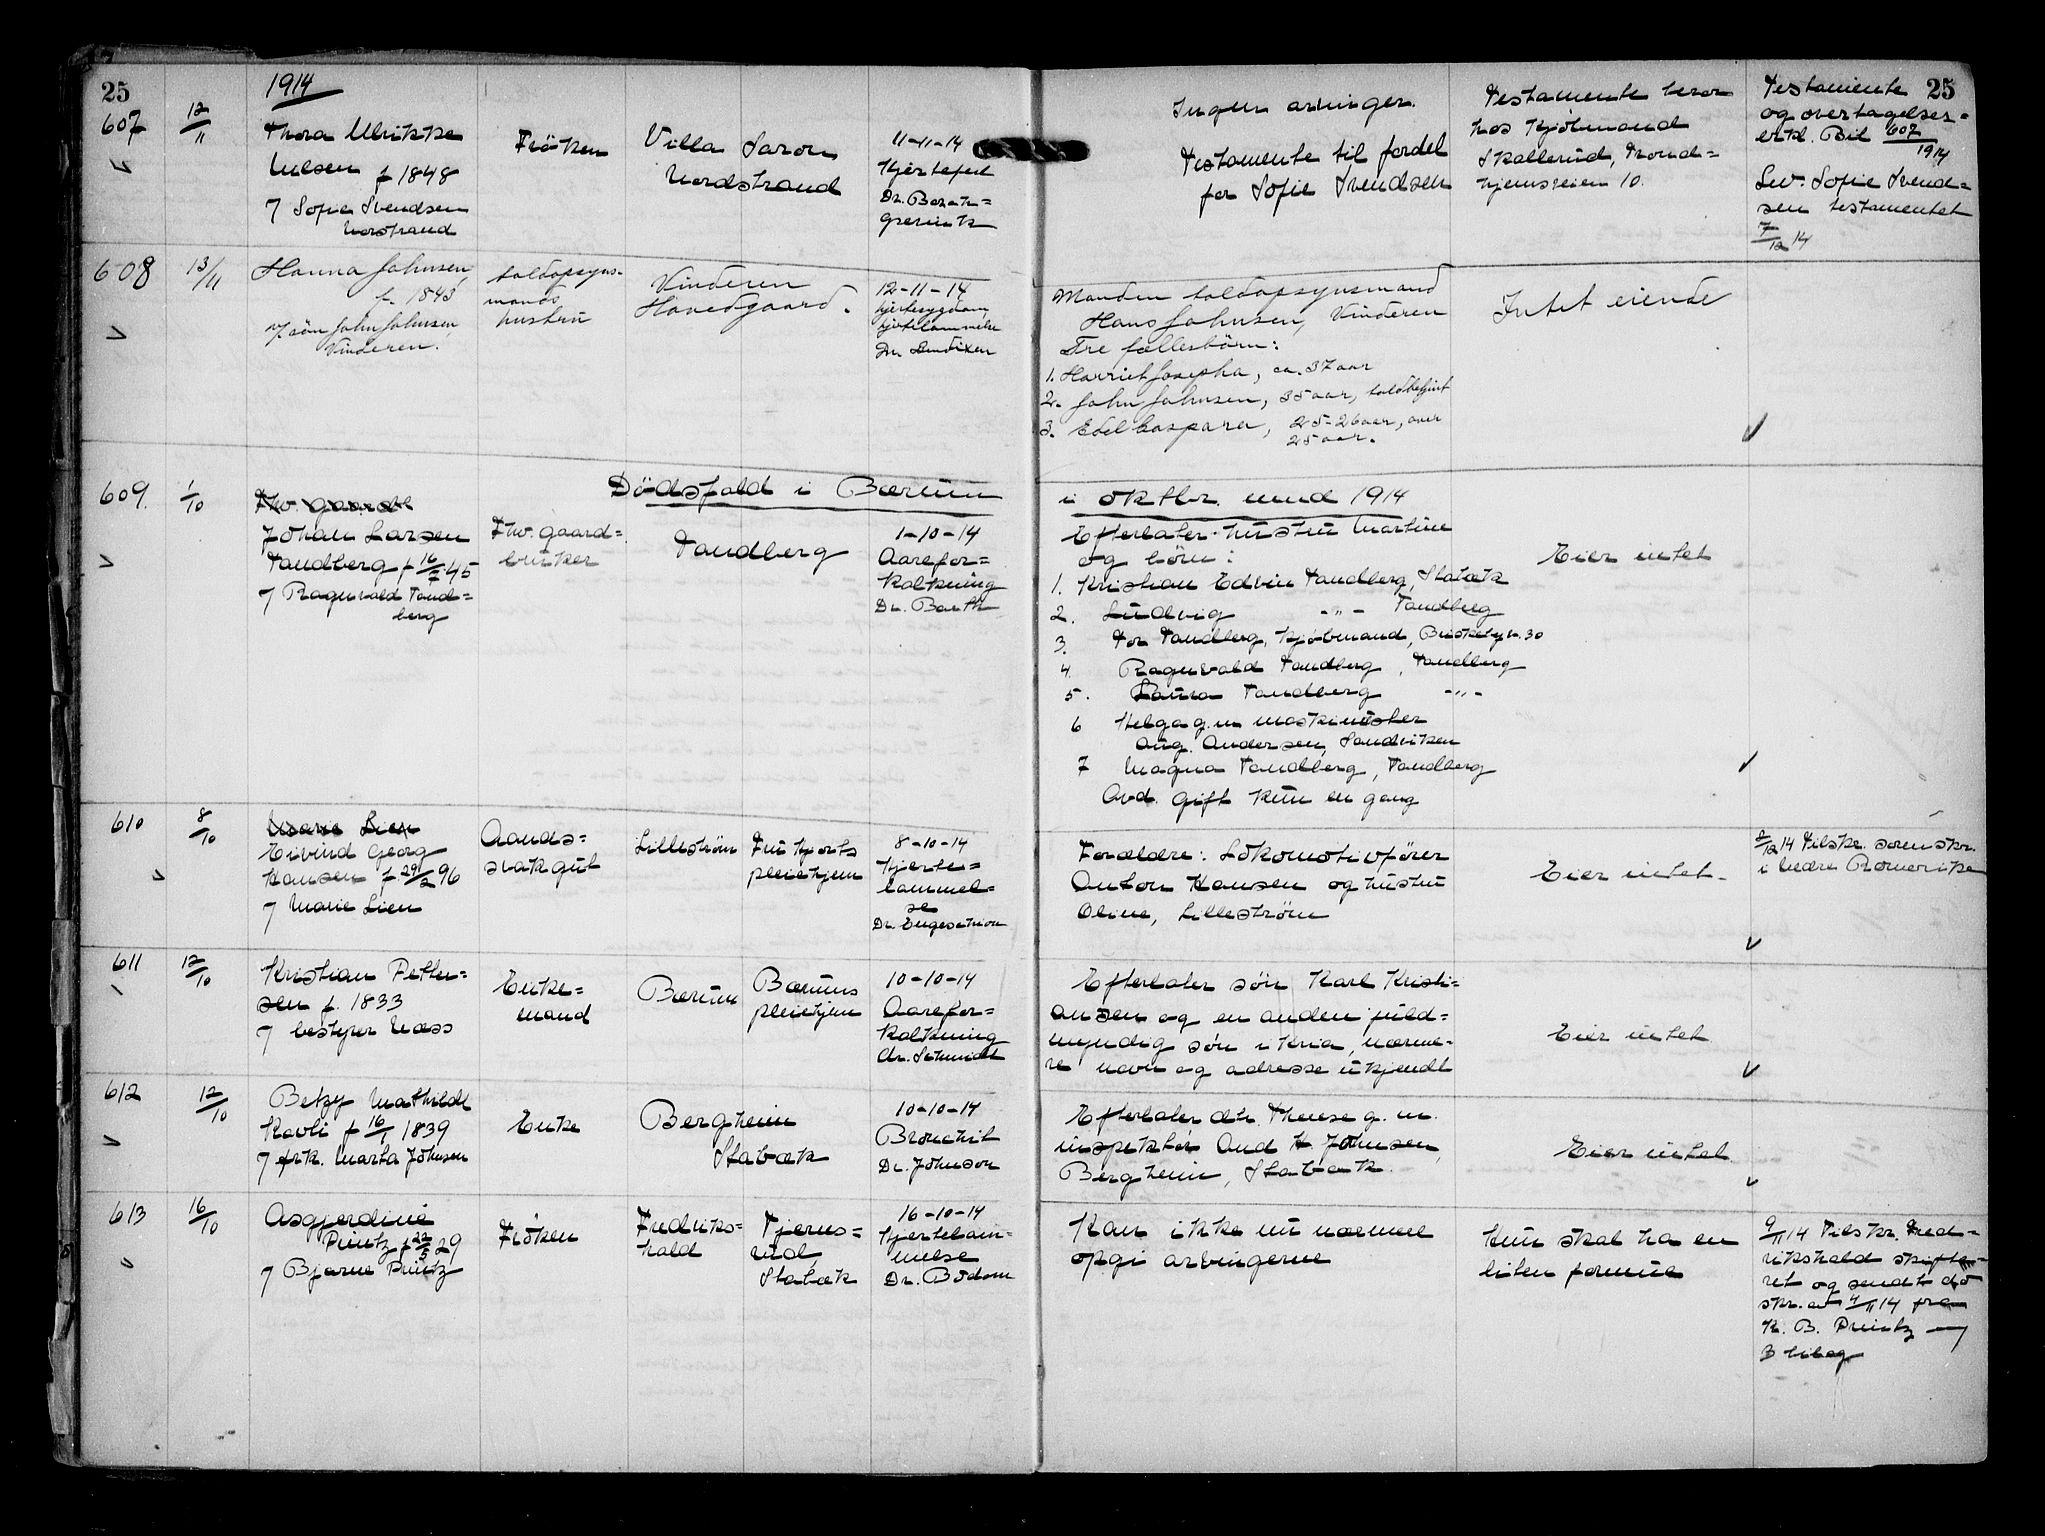 25
1914
25
607
12/11
Thora Ulrikke
Nilsen f 1848
7 Sofie Svendsen
Norstrand
Frøken
Villa Saron
Nordstrand
11-11-14
Hjertefeil
Ingen arvinger.
Testamente til fordel
for Sofie Svendsen
Testamente beror
hos Kjøbmand
Skallerud, Trond=
hjemsveien 10.
Testamente
og overtagelses=
erkl. Bil 607/1914
Lev. Sofie Svend=
sen testamentet
7/12 14
608
13/11
Hanna Johnsen,
f. 1843
7 sön John Johnsen,
Vinderen.
toldopsyns-
mands
hustru
Vinderen
Hovedgaard.
12-11-14
hjertesygdom
hjertelammelse
Manden toldopsynsmand
Hans Johnsen, Vinderen
Tre fællesbörn:
1. Harriet Josepha, ca. 37 aar
2. John Johnsen, 35 aar, toldbetjent
3. Edel Caspara, 25-26 aar, over
25 aar.
Intet eiende
Dödsfald i Bærum
i oktbr. mnd 1914
609.
1/10
Fhv. gaardb
Johan Larsen
Tandberg f 16/7 45
7 Ragnvald Tand=
berg
Fhv. gaard=
bruker
Tandberg
1-10-14
Aarefor=
kalkning
Dr. Barth
Efterlater hustru Martine
og börn:
1. Kristian Edvin Tandberg, Stabæk
2. Ludvig -"- Tandberg
3. Tor Tandberg, Kjöbmand, Briskebyv. 30
4. Ragnvald Tandberg, Tandberg
5. Laura Tandberg -"-
6 Helga g.m maskinester
Aug. Andersen, Sandviken
7 Magna Tandberg, Tandberg
Avd. gift kun en gang
Eier intet
610
8/10
Marie Lien
Eivind Georg
Hansen f. 29/2 96
7 Marie Lien
Aands=
svak gut
Lilleström
Fru Hjorts
pleiehjem
8-10-14
Hjerte=
lammel=
se
Dr. Engeschion
Forældre: Lokomotivförer
Anton Hansen og hustru
Oline, Lilleström
Eier intet.
2/12 14 Tilskr. sorenskr.
i Nedre Romerike
611
12/10
Kristian Petter=
sen f. 1833
7 bestyrer Næss
Enke=
mand
Bærum
Bærums
pleiehjem
10-10-14
Aarefor=
kalkning
dr. Schmidt
Efterlater sön Karl Kristi=
ansen og en anden fuld=
myndig sön i Kria, nærme=
re navn og adresse ukjendt
Eier intet
612
12/10
Betzy Mathilde
Ravli f 16/1 1839
7 frk. Marta Johnsen
Enke
Bergheim
Stabæk
10-10-14
Bronchit
Dr. Johnson
Efterlater dtr. Therese g. m.
inspektör And H Johnsen,
Bergheim, Stabæk.
Eier intet.
613
16/10
Asgjerdine
Printz f 22/5 29
7 Bjarne Printz
Fröken
Fredriks=
hald
Tjerns=
rud,
Stabæk
16-10-14
Hjertelam=
melse
Dr. Bodom
Kan ikke nu nærmere
opgi arvingerne
Hun skal ha en
liten formue
9/11 14 Tilskr. Fred=
rikshald skifte=
ret og sendt do
skr. av 4/11 14 fra
K. B. Printz —
3 bilag